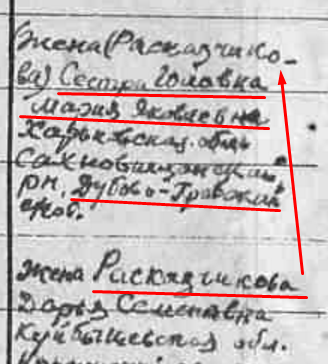 Жена (Расказчико-
ва) Сестра Головка
Мария Яковлевна
Харьковская обл.
Сахновщанский
рн, Дубово-Гравская
жена Раскязчикова
Дарья Семеновна
Куйбышевская обл.